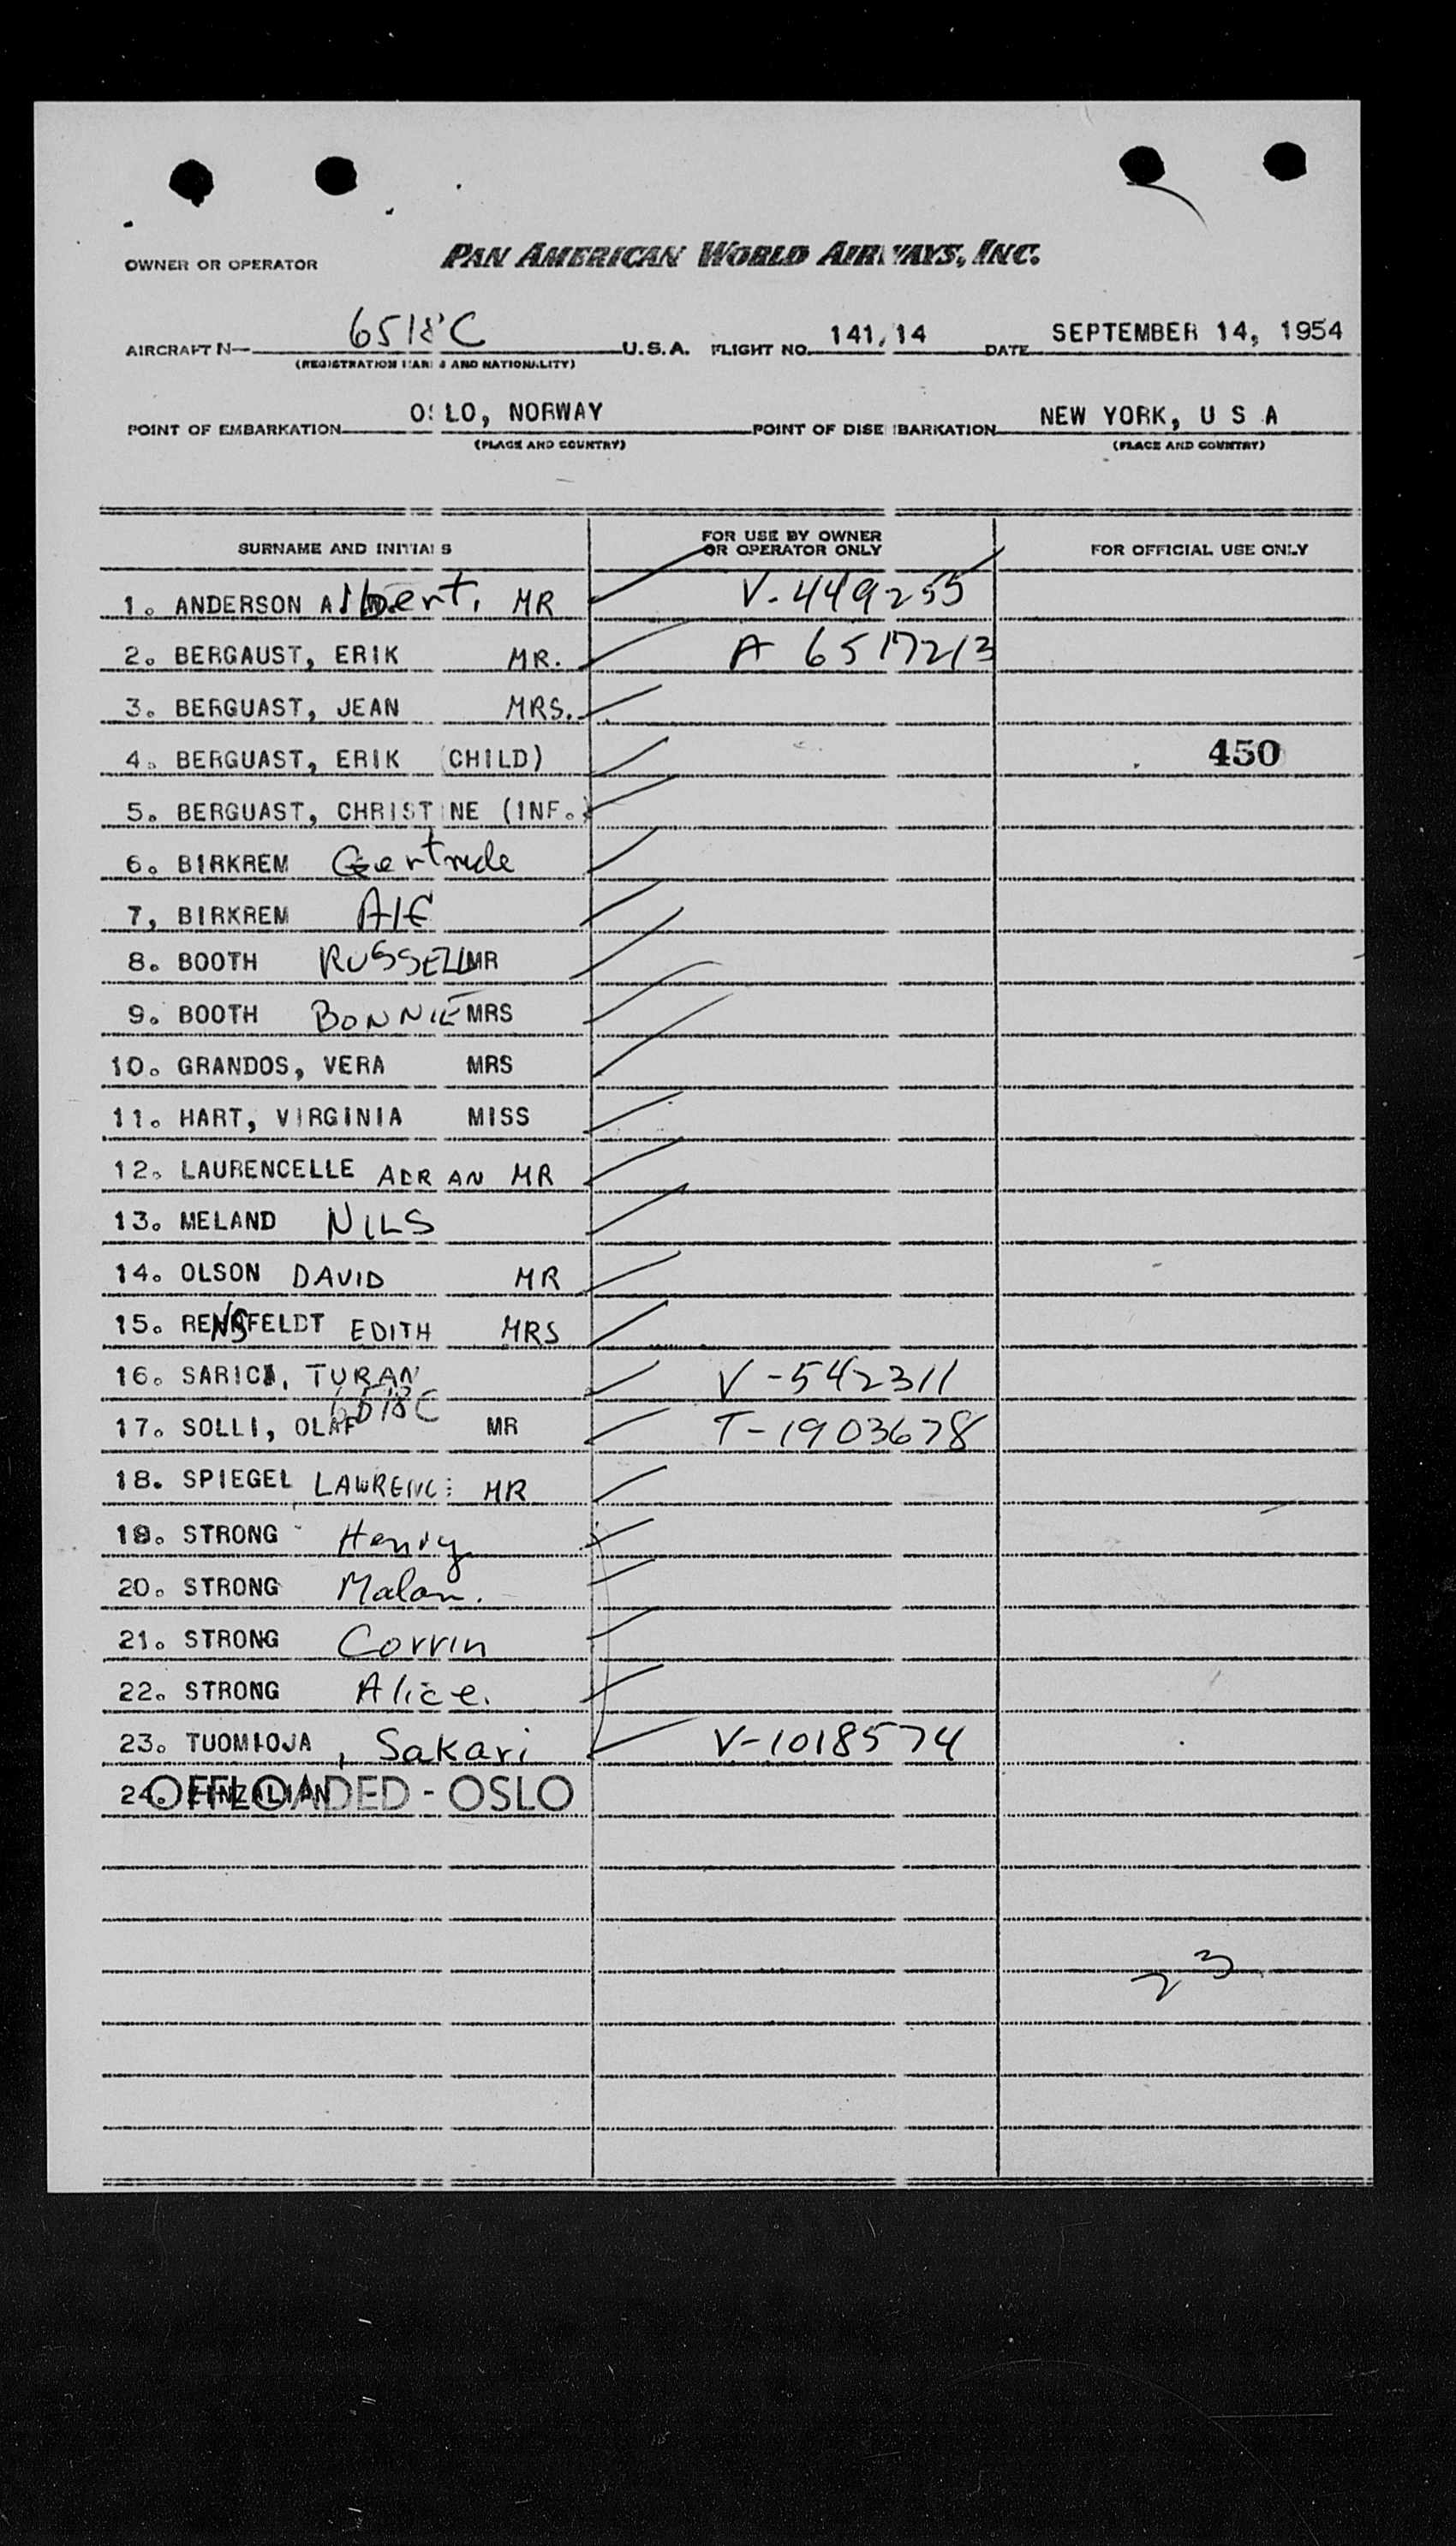 OWNER OR OPERATOR PAN AMERICAN WORLD AIRWAYS, INC.
AIRCRAFT N— 6518C U.S.A. FLIGHT NO. 141/14 DATE SEPTEMBER 14, 1954
(REGISTRATION MARKS AND NATIONALITY)
POINT OF EMBARKATION OSLO, NORWAY POINT OF DISEMBARKATION NEW YORK, U S A
(PLACE AND COUNTRY) (PLACE AND COUNTRY)
SURNAME AND INITIALS FOR USE BY OWNER OR OPERATOR ONLY FOR OFFICIAL USE ONLY
1. ANDERSON Albert. MR V-449255
2. BERGAUST, ERIK MR. A 6517213
3. BERGUAST, JEAN MRS.
4. BERGUAST, ERIK (CHILD) 450
5. BERGUAST, CHRISTINE (INF.)
6. BIRKREM Gertrude
7, BIRKREM Alf
8. BOOTH RUSSELL MR
9. BOOTH BONNIE MRS
10. GRANDOS, VERA MRS
11. HART, VIRGINIA MISS
12. LAURENCELLE ADRIAN MR
13. MELAND NILS
14. OLSON DAVID MR
15. RENSFELDT EDITH MRS
16. SARICA, TURAN V-542311
6518C
17. SOLLI, OLAF MR T-1903678
18. SPIEGEL LAWRENCE MR
19. STRONG Henry
20. STRONG Malan.
21. STRONG Corrin
22. STRONG Alice.
23. TUOMIOJA, Sakari V-1018574
24. OFFLOADED - OSLO
23